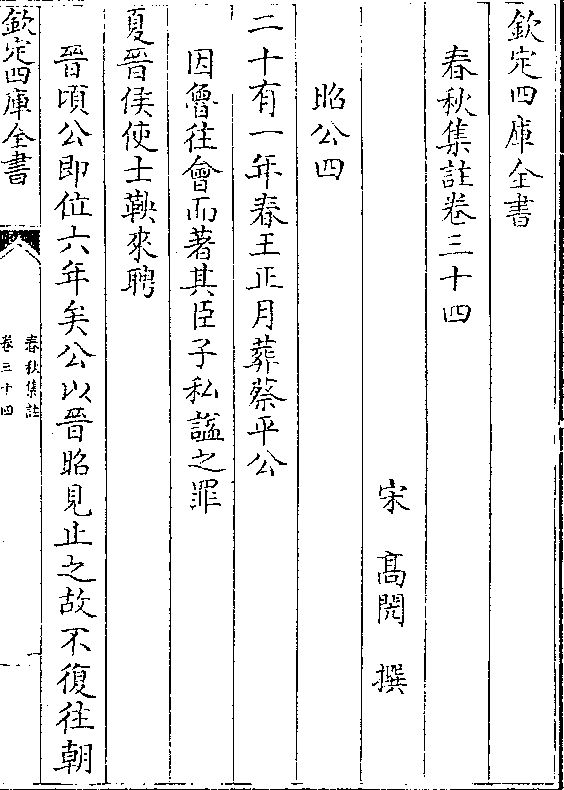 欽定四庫全書
春秋集註卷三十四
宋 髙閌 撰
昭公四
二十有一年春王正月葬蔡平公
因魯往會而著其臣子私諡之罪
夏晉侯使士鞅來聘
晉頃公即位六年矣公以晉昭見止之故不復往朝
欽定四庫全書
春秋集註
卷三十四